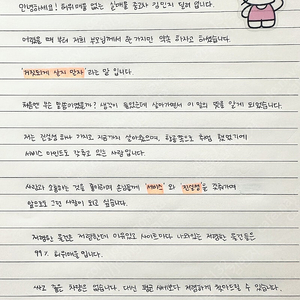 안녕하세요! 허위매물 없는 실매물 중고차 김민지 딜러 입니다.
어렸을 때 부터 저희 부모님께서 한 가지만 약속 하자고 하셨습니다.
'거짓되게 살지 말자' 라는 말 입니다.
처음엔 무슨 말씀이었을까? 생각이 들었는데 살아가면서 이 말의 뜻을 알게 되었습니다.
저는 진정성 하나 가지고 지금까지 살아왔으며, 항공쪽으로 취업 했었기에
서비스 마인드도 갖추고 있는 사람입니다.
사람과 소통하는 것을 좋아하며 손님들께 '서비스' 와 '진정성'을 갖춰가며
앞으로도 그런 사람이 되고 싶습니다.
저렴한 물건은 저렴한데 이유있고 사이트마다 나와있는 저렴한 물건들은
99% 허위매물 입니다.
싸고 좋은 차량은 없습니다. 대신 평균 시세보다 저렴하게 찾아드릴 수 있습니다.